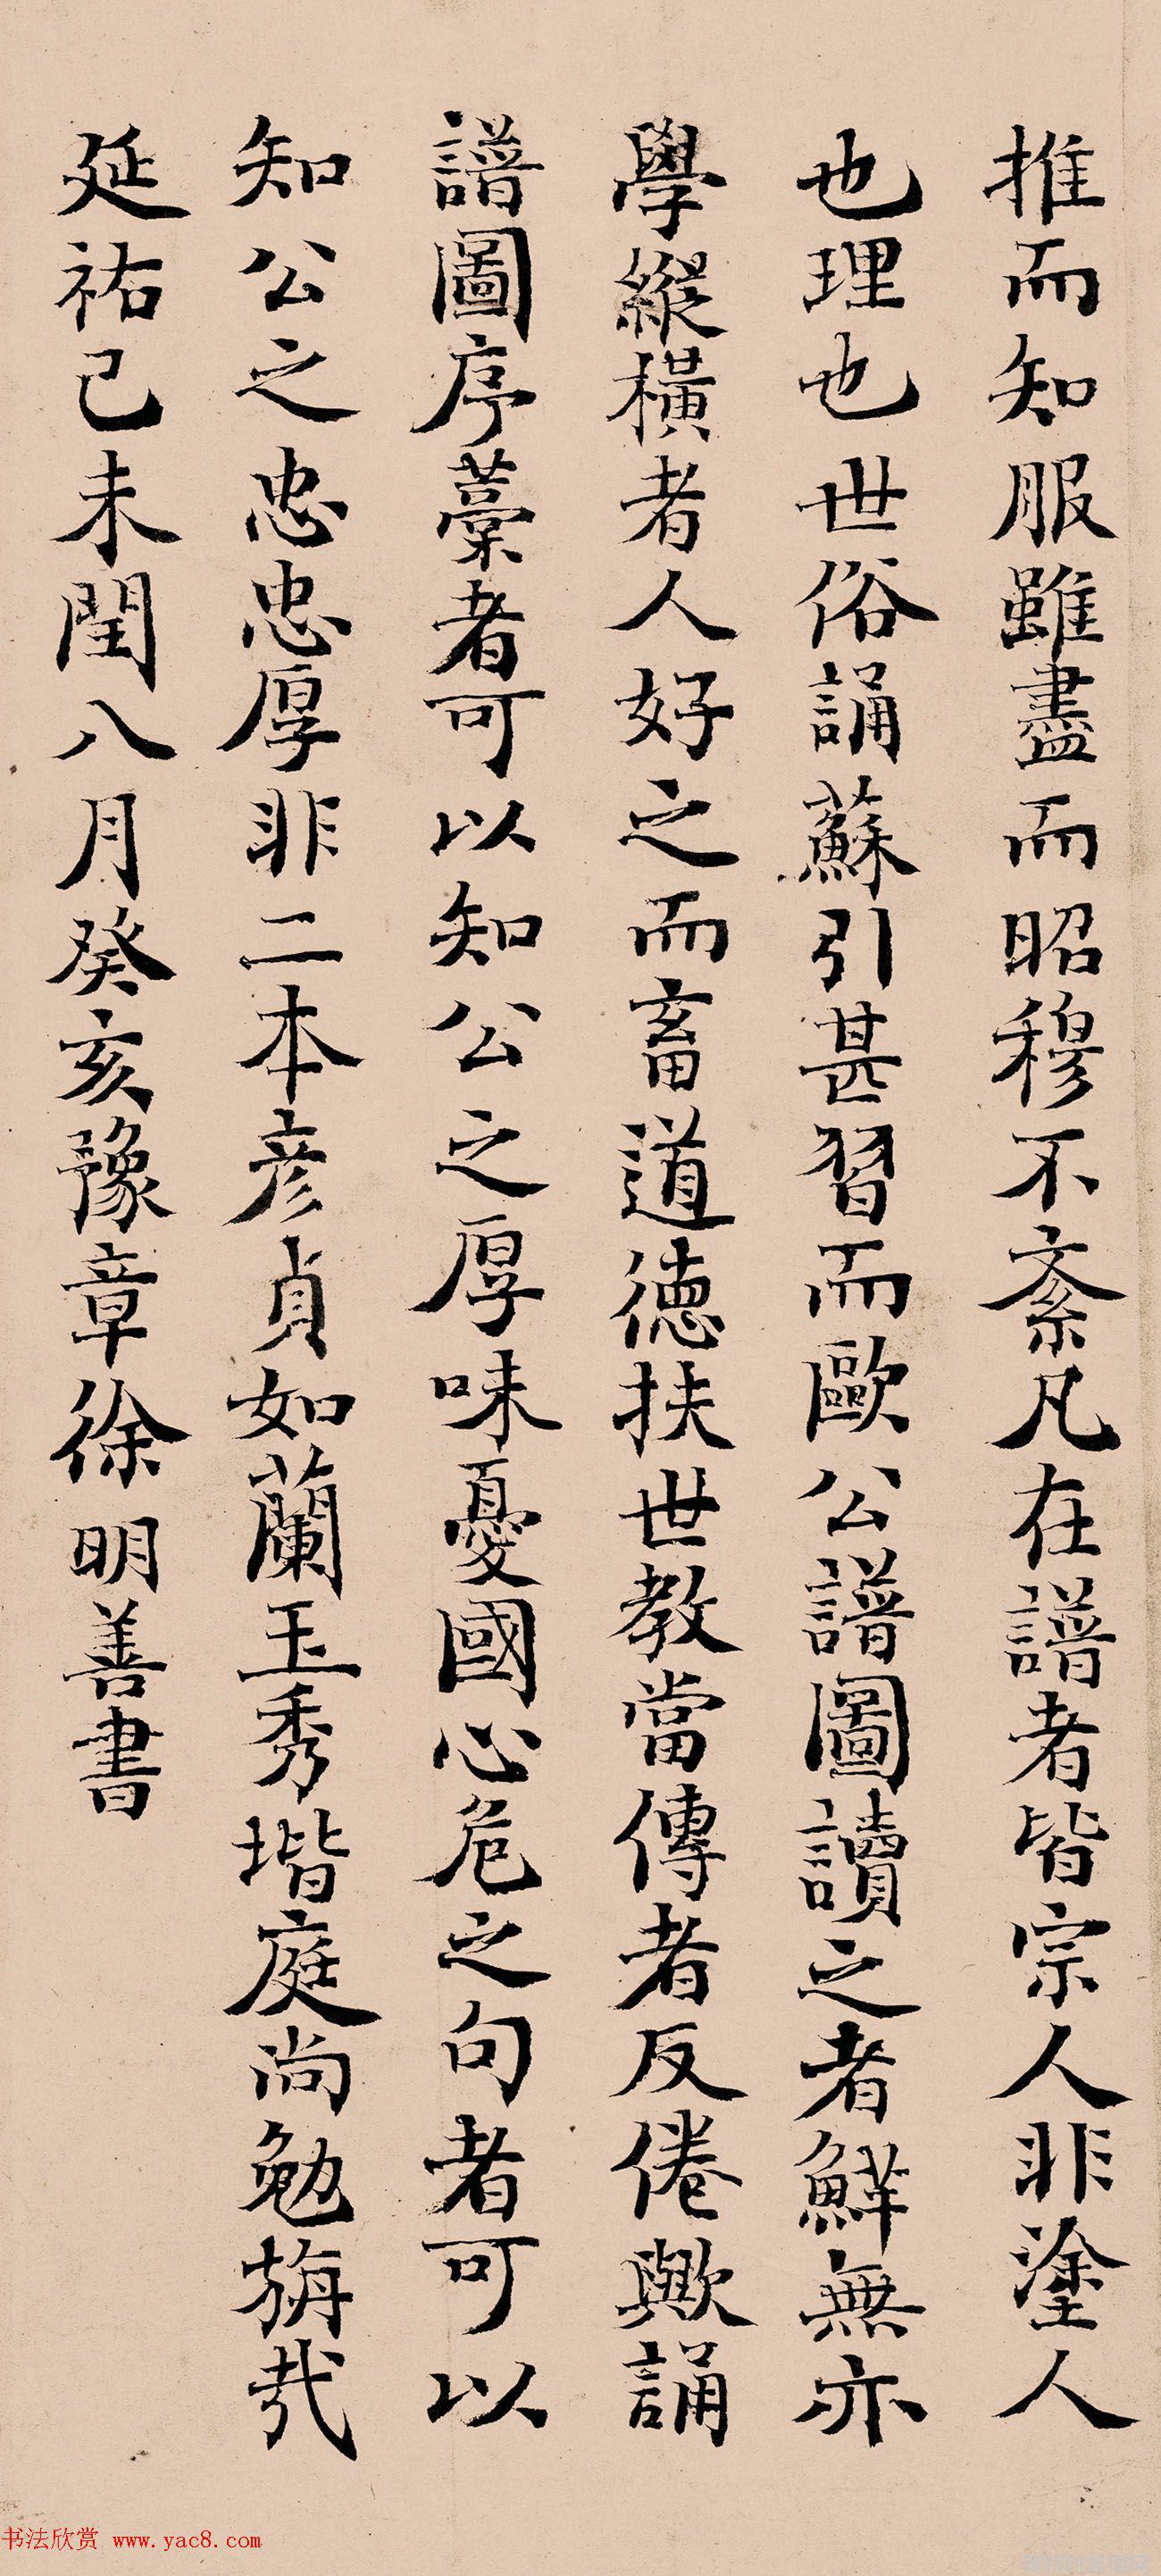 推而知服雖盡而昭穆不紊凡在譜者皆宗人非塗人
也理也世俗誦蘇引甚習而歐公譜圖讀之者鮮無亦
學縱橫者人好之而畜道德扶世教當傳者反倦歟誦
譜圖序藁者可以知公之厚味憂國心危之句者可以
知公之忠忠厚非二本彦貞如蘭玉秀堦庭尚勉旃哉
延祐己未閏八月癸亥豫章徐明善書
书法欣赏 www.yac8.com